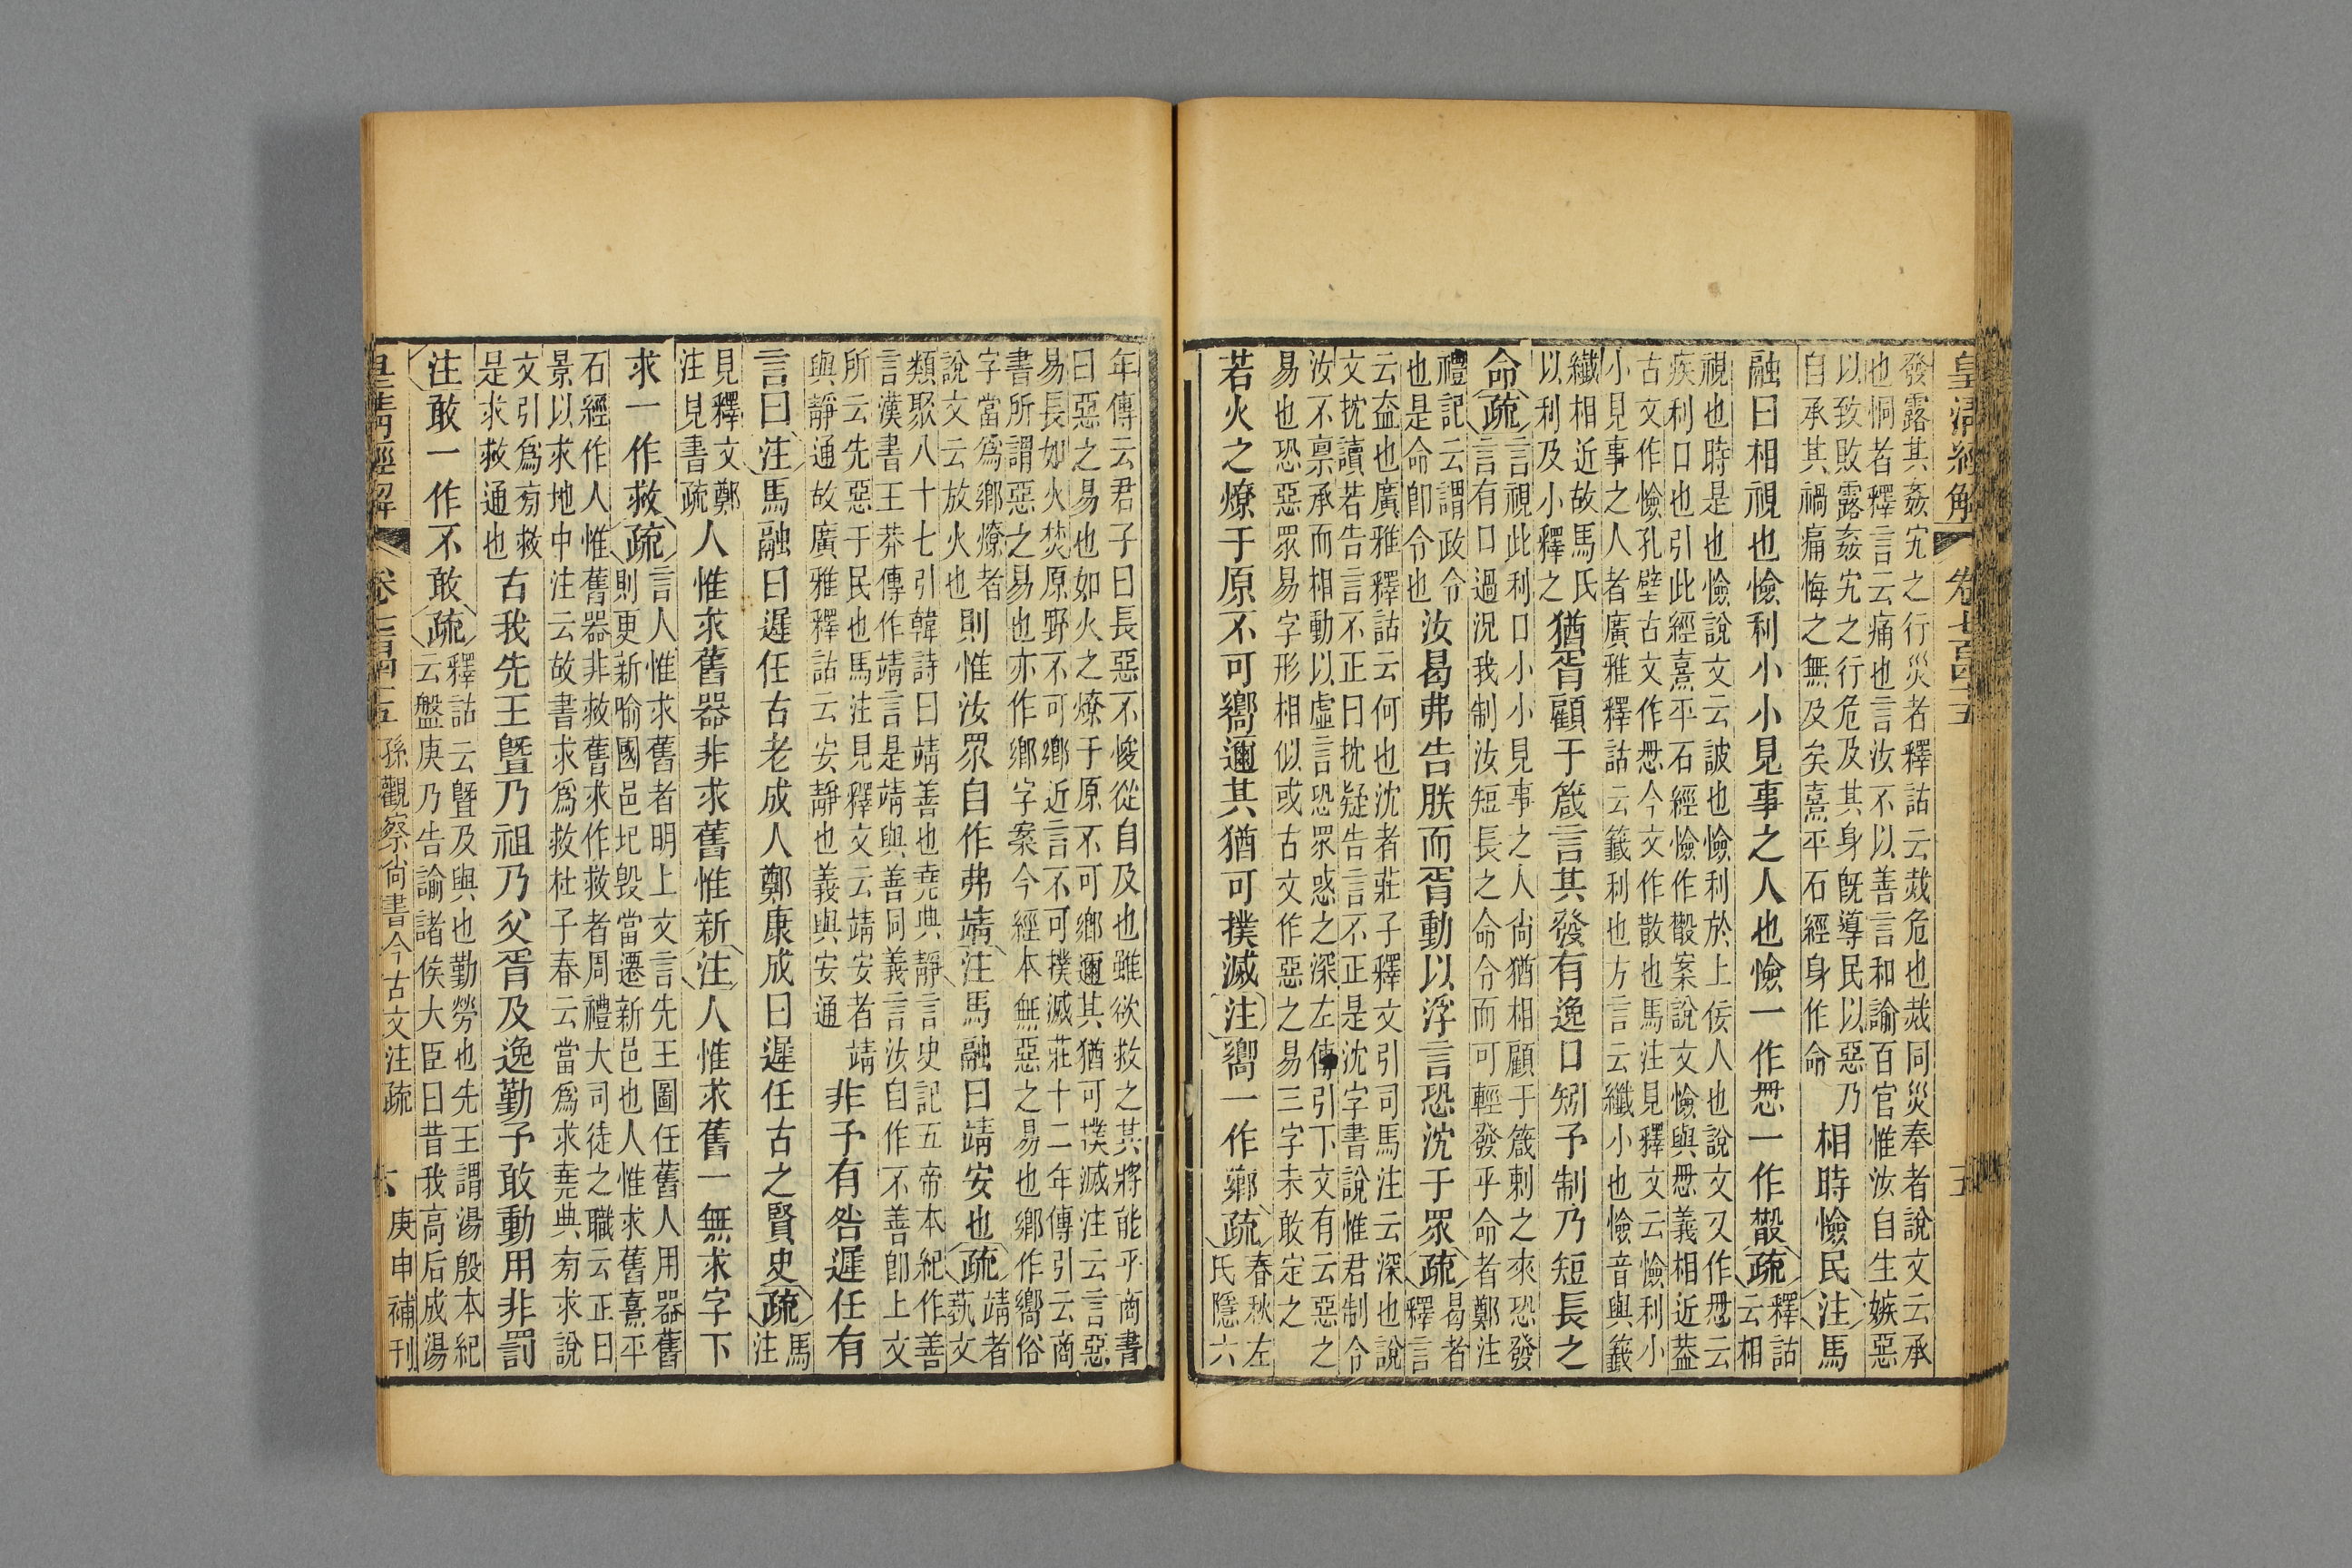 皇清經解 卷七百四十五 十五
發露其姦宄之行災者釋詁云烖危也烖同災奉者說文云承
也恫者釋言云痛也言汝不以善言和諭百官惟汝自生嫉惡
以致敗露姦宄之行危及其身旣導民以惡乃
自承其禍痛悔之無及矣熹平石經身作命
相時憸民注馬
融曰相視也憸利小小見事之人也憸一作㤪一作㪚疏
釋詁
云相
視也時是也憸說文云詖也憸利於上佞人也說文又作㤪云
疾利口也引此經熹平石經憸作㪚案說文憸與㤪義相近葢
古文作憸孔壁古文作㤪今文作散也馬注見釋文云憸利小
小見事之人者廣雅釋詁云籤利也方言云纖小也憸音與籤
纖相近故馬氏
以利及小釋之
猶胥顧于箴言其發有逸口矧予制乃短長之
命疏
言視此利口小小見事之人尙猶相顧于箴刺之來恐發
言有口過況我制汝短長之命令而可輕發乎命者鄭注
禮記云謂政令
也是命卽令也
汝曷弗告朕而胥動以浮言恐沈于眾疏
曷者
釋言
云盍也廣雅釋詁云何也沈者莊子釋文引司馬注云深也說
文扰讀若告言不正曰扰疑告言不正是沈字書說惟君制令
汝不禀承而相動以虛言恐眾惑之深左傳引下文有云惡之
易也恐惡眾易字形相似或古文作惡之易三字未敢定之
若火之燎于原不可嚮邇其猶可撲滅注嚮一作鄕疏
春秋左
氏隱六
年傳云君子曰長惡不悛從自及也雖欲救之其將能乎商書
曰惡之易也如火之燎于原不可鄉邇其猶可撲滅注云言惡
易長如火焚原野不可鄉近言不可撲滅莊十二年傳引云商
書所謂惡之易也亦作鄉字案今經本無惡之易也鄉作嚮俗
字當爲鄉燎者
說文云放火也
則惟汝眾自作弗靖注馬融曰靖安也疏
靖者
蓺文
類聚八十七引韓詩曰靖善也堯典靜言史記五帝本紀作善
言漢書王莽傳作靖言是靖與善同義言汝自作不善卽上文
所云先惡于民也馬注見釋文云靖安者靖
與靜通故廣雅釋詁云安靜也義與安通
非予有咎遲任有
言曰注馬融曰遲任古老成人鄭康成曰遲任古之賢史疏
馬
注
見釋文鄭
注見書疏
人惟求舊器非求舊惟新注人惟求舊一無求字下
求一作救疏
言人惟求舊者明上文言先王圖任舊人用器舊
則更新喻國邑圯毀當遷新邑也人惟求舊熹平
石經作人惟舊器非救舊求作救者周禮大司徒之職云正日
景以求地中注云故書求爲救杜子春云當爲求堯典㫄求說
文引爲㫄救
是求救通也
古我先王曁乃祖乃父胥及逸勤予敢動用非罰
注敢一作不敢疏
釋詁云曁及與也勤勞也先王謂湯殷本紀
云盤庚乃告諭諸侯大臣曰昔我高后成湯
皇淸經解 卷七百四十五 孫觀察尙書今古文注疏 十六 庚申補刊